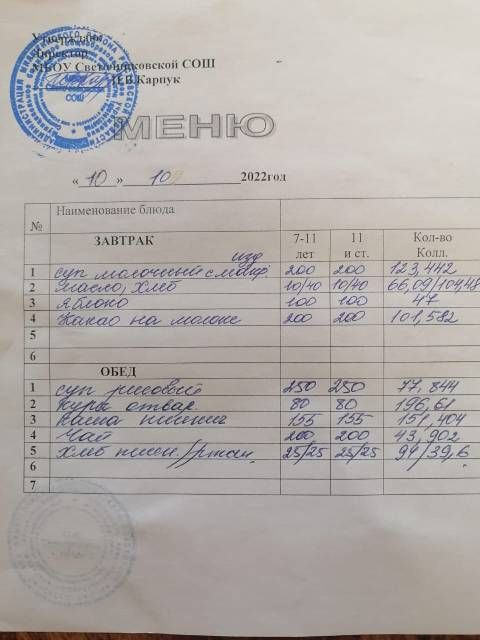 Утверждаю
Директор
МБОУ Светочниковской СОШ
Л.В.Карпук
МЕНЮ
« 10 » 10 2022год
№ Наименование блюда
ЗАВТРАК 7-11 лет 11 и ст. Кол-во Колл.
изд
1 суп молочный с мак 200 200 123,442
2 масло, хлеб 10/40 10/40 66,09/104,48
3 Яблоко 100 100 47
4 Какао на молоке 200 200 101,582
5
6
ОБЕД
1 суп рисовый 250 250 77,844
2 Кура отвар 80 80 196,61
3 Каша пшенич 155 155 151,404
4 Чай 200 200 43,902
5 Хлеб пшен/ржан. 25/25 25/25 94/39,6
6
7